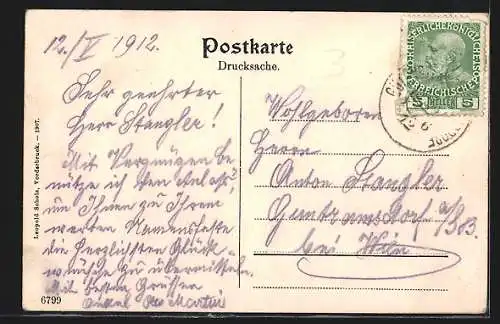 12./V 1912.
Postkarte
Drucksache.
Sehr geehrter
Herr Stangler!
Mit Vergnügen be
nütze ich den Anlaß,
um Ihnen zu Ihrem
werten Namensfeste
die herzlichsten Glück-
wünsche zu übermitteln.
Mit besten Grüssen
Martin
Wohlgeboren
Herrn
Anton Stangler
Guntramsdorf a/S.B.
bei Wien
KAISERLICHE KÖNIGLICHE
ÖSTERREICHISCHE
5 HELLER 5
Leopold Scholz, Vorderbruck. — 1907.
6799
3